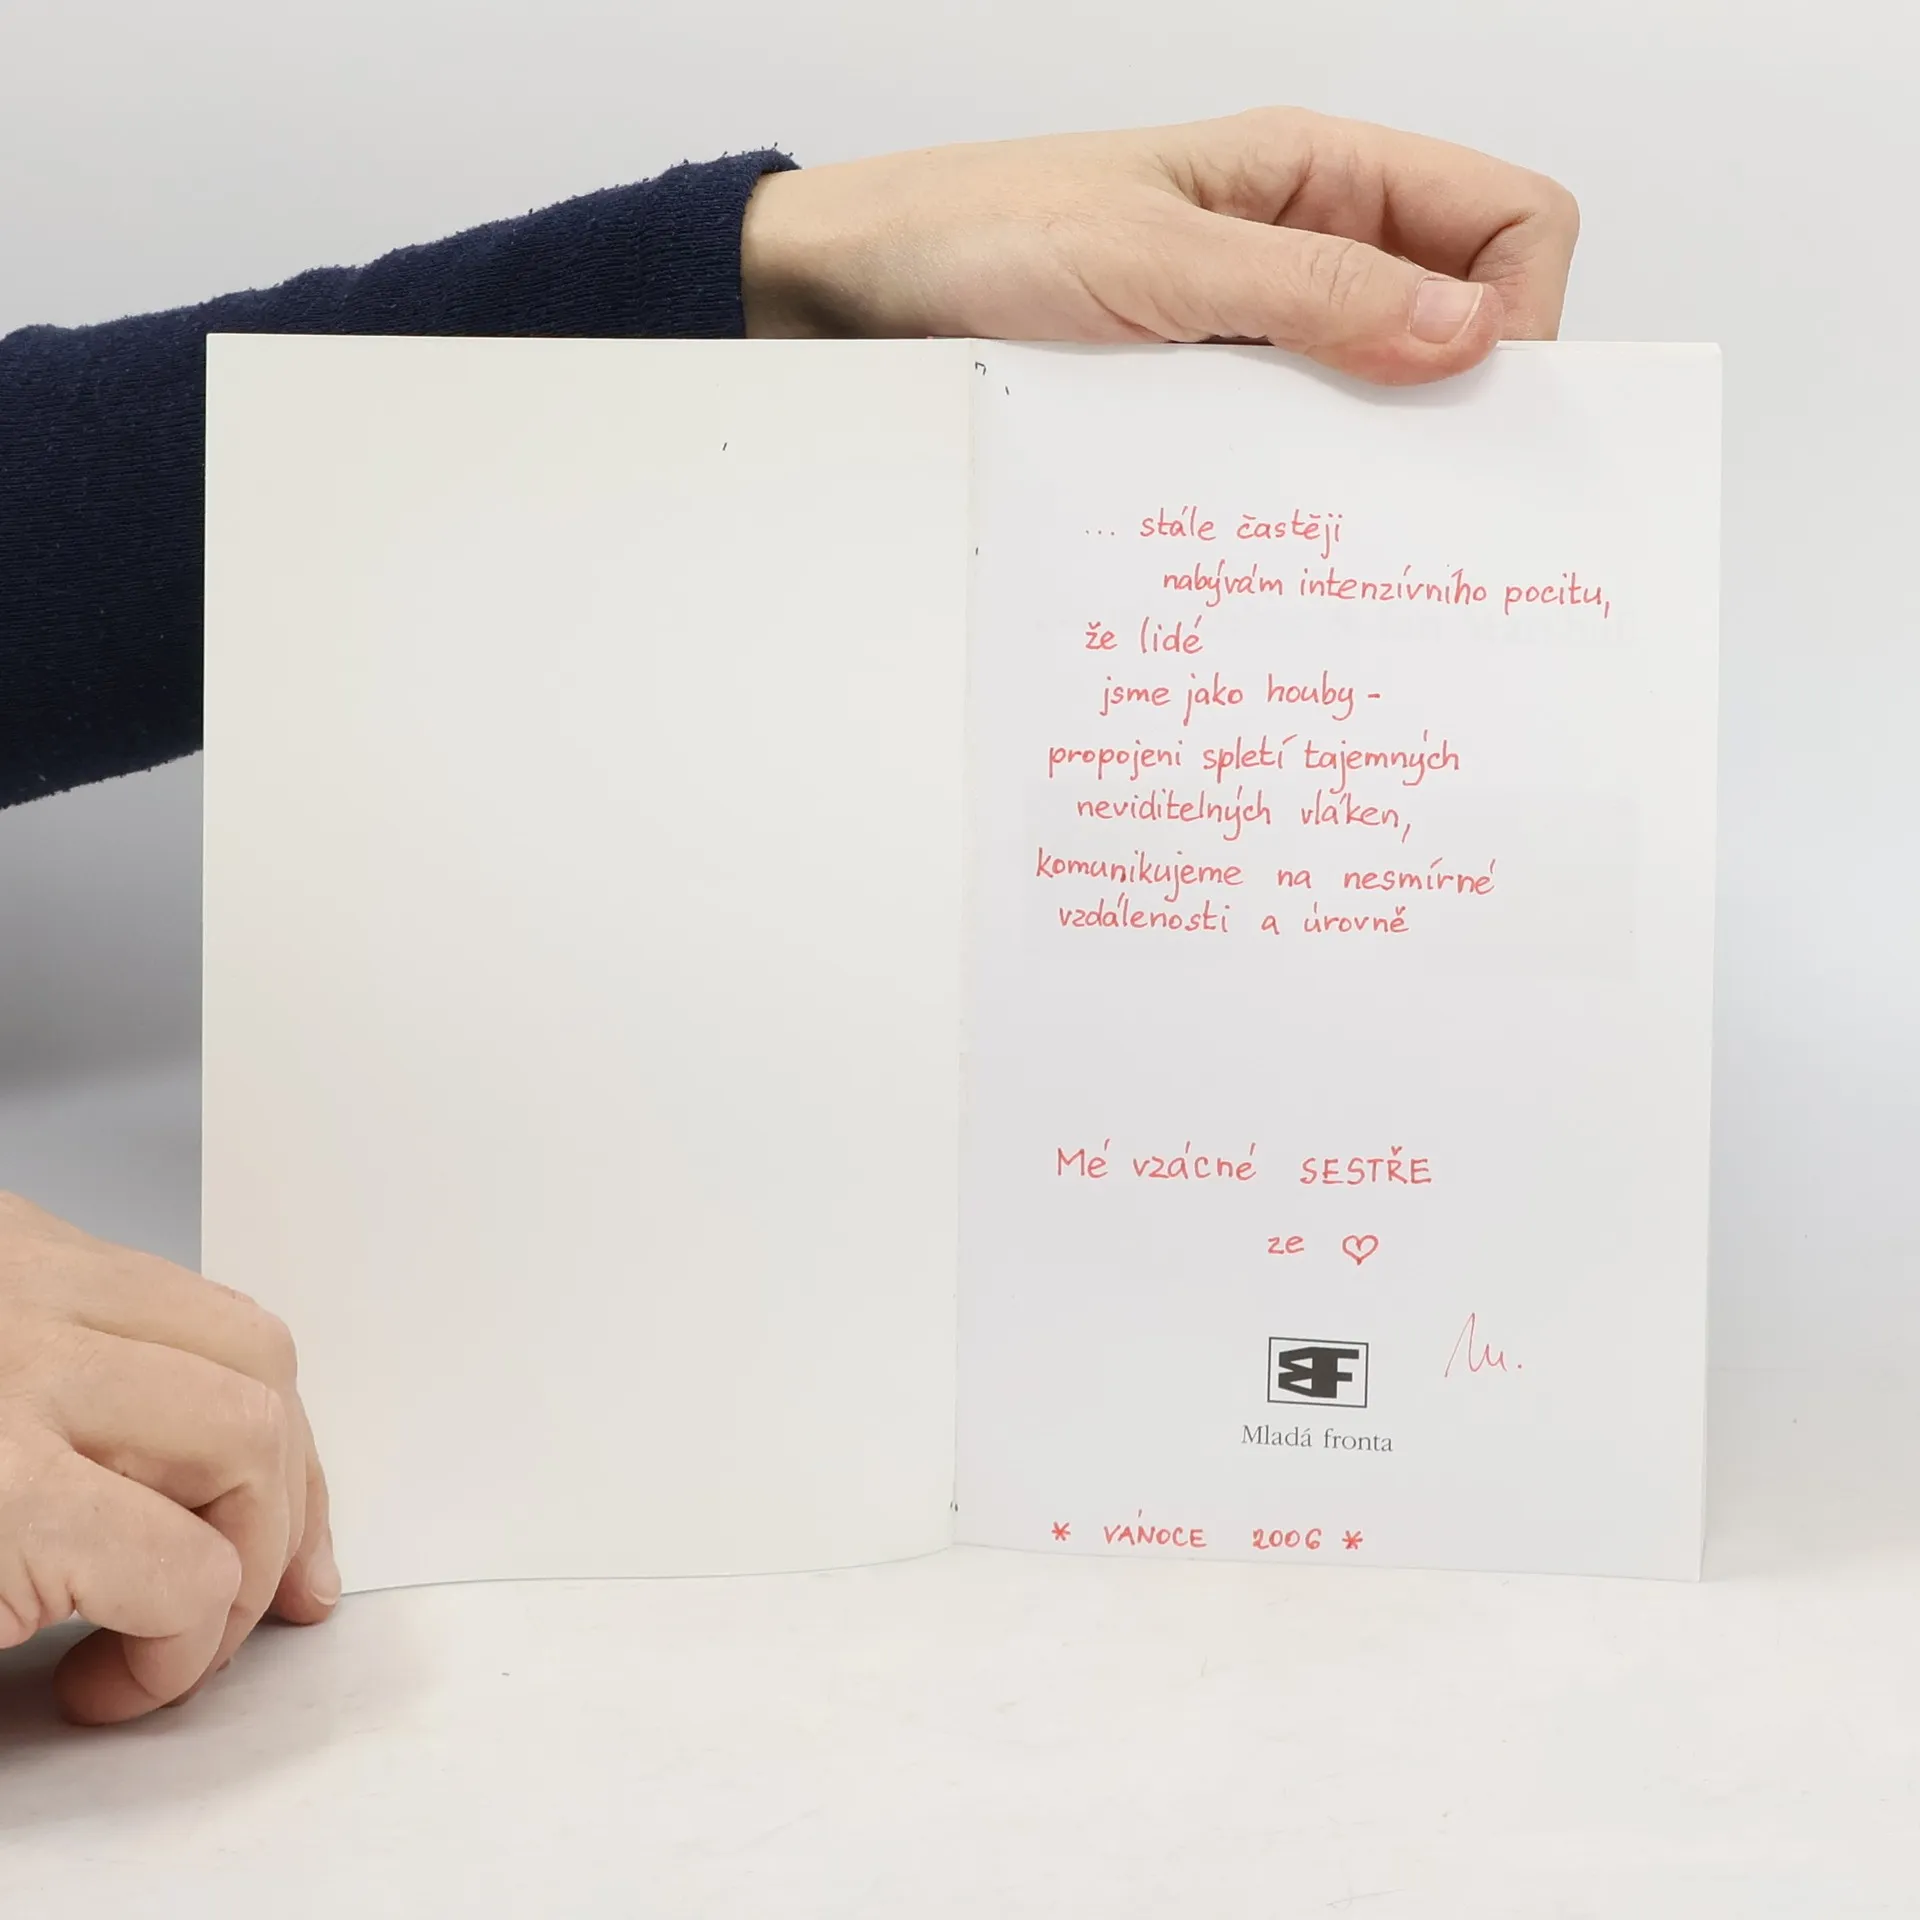 ... stále častěji
nabývám intenzívního pocitu,
že lidé
jsme jako houby -
propojeni spletí tajemných
neviditelných vláken,
komunikujeme na nesmírné
vzdálenosti a úrovně
Mé vzácné SESTŘE
ze ♡
M.
MF
Mladá fronta
* VÁNOCE 2006 *